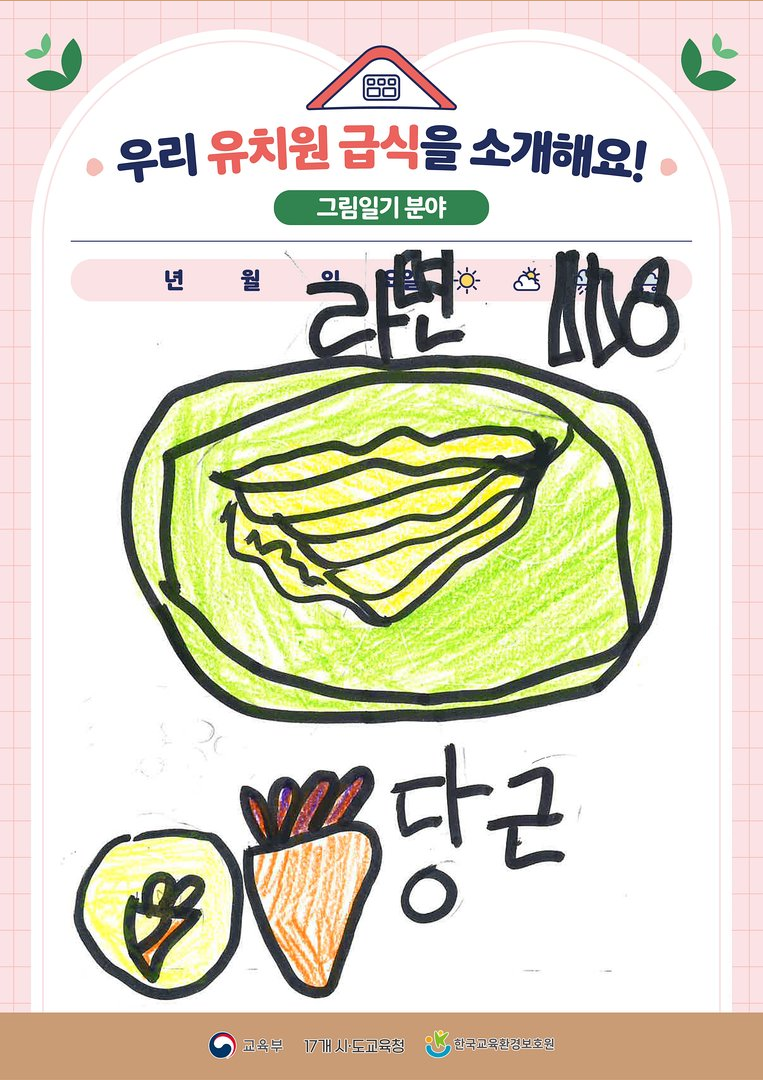 우리 유치원 급식을 소개해요!
그림일기 분야
년 월 일 요일
라면
당근
교육부 17개 시·도교육청 한국교육환경보호원